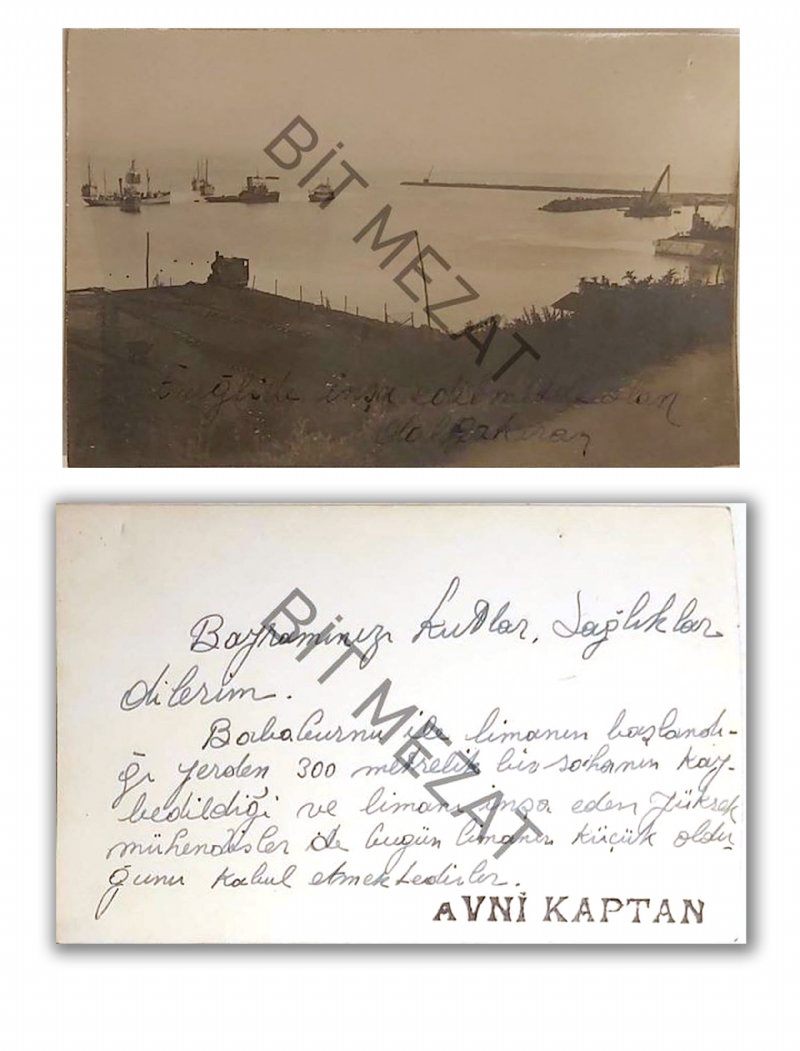 BİT MEZAT
Ereğlide inşa edilmekde olan
dalgakıran
Bayramınızı kutlar, Sağlıklar
dilerim.
BİT MEZAT
Bababurnu ile limanın başlandı-
ğı yerden 300 metrelik bir sahanın kay-
bedildiği ve limanı inşa eden Yüksek
mühendisler de bugün limanın küçük oldu
ğunu kabul etmektedirler.
AVNİ KAPTAN